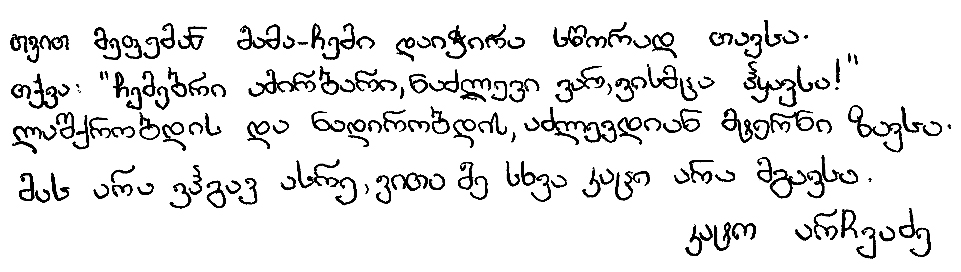 თვით მეფემან მამა-ჩემი დაიჭირა სწორად თავსა.
თქვა: "ჩემებრი ამირბარი, ნაძლევი ვარ, ვისმცა ჰყავსა!"
ლაშქრობდის და ნადირობდის, აძლევდიან მტერნი ზავსა.
მას არა ვჰგავ ასრე, ვითა მე სხვა კაცი არა მგავსა.
კატო არჩვაძე